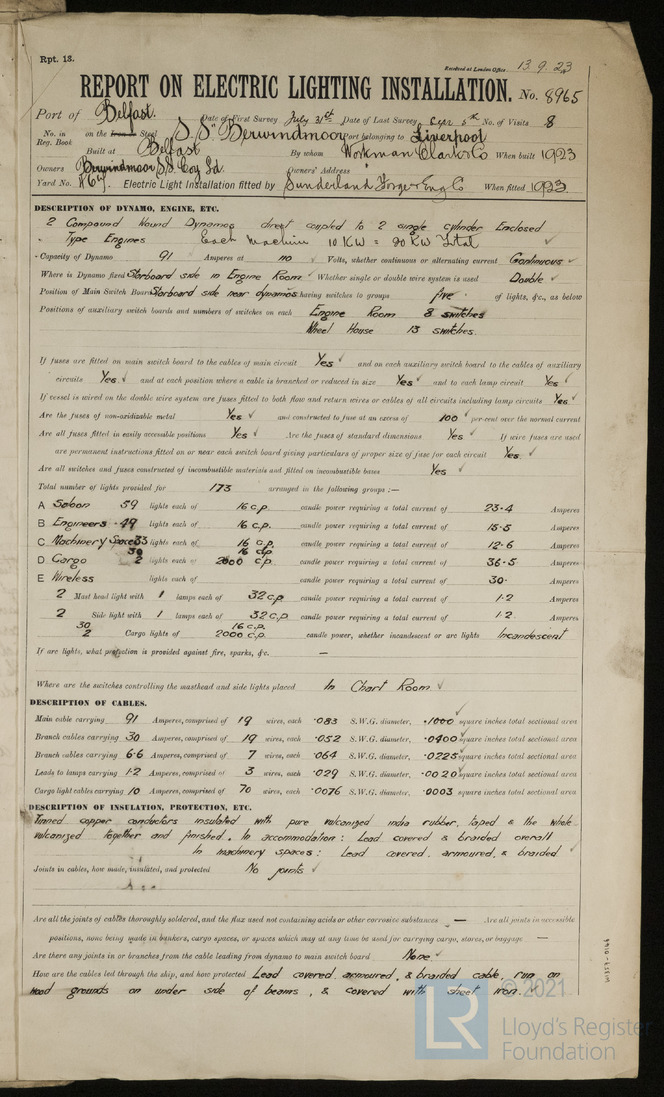 Rpt. 13.
Received at London Office 13.9.23
REPORT ON ELECTRIC LIGHTING INSTALLATION. No. 8965
Port of Belfast. Date of First Survey July 31st Date of Last Survey Sept 5th No. of Visits 8
No. in Reg. Book on the Iron or Steel S.S. "Berwindmoor" Port belonging to Liverpool
Built at Belfast By whom Workman Clark & Co When built 1923
Owners Berwindmoor S.S. Coy Ld. Owners' Address
Yard No. Electric Light Installation fitted by Sunderland Forge & Eng Co When fitted 1923
DESCRIPTION OF DYNAMO, ENGINE, ETC.
2 Compound Wound Dynamos direct coupled to 2 single cylinder Enclosed
Type Engines Each machine 10 KW = 20 KW Total
Capacity of Dynamo 91 Amperes at 110 Volts, whether continuous or alternating current Continuous
Where is Dynamo fixed Starboard side in Engine Room Whether single or double wire system is used Double
Position of Main Switch Board Starboard side near dynamos having switches to groups five of lights, &c., as below
Positions of auxiliary switch boards and numbers of switches on each Engine Room 8 switches
Wheel House 13 switches.
If fuses are fitted on main switch board to the cables of main circuit Yes and on each auxiliary switch board to the cables of auxiliary
circuits Yes and at each position where a cable is branched or reduced in size Yes and to each lamp circuit Yes
If vessel is wired on the double wire system are fuses fitted to both flow and return wires or cables of all circuits including lamp circuits Yes
Are the fuses of non-oxidizable metal Yes and constructed to fuse at an excess of 100 per cent over the normal current
Are all fuses fitted in easily accessible positions Yes Are the fuses of standard dimensions Yes If wire fuses are used
are permanent instructions fitted on or near each switch board giving particulars of proper size of fuse for each circuit Yes.
Are all switches and fuses constructed of incombustible materials and fitted on incombustible bases Yes
Total number of lights provided for 173 arranged in the following groups :—
A Saloon 59 lights each of 16 c.p. candle power requiring a total current of 23.4 Amperes
B Engineers 49 lights each of 16 c.p. candle power requiring a total current of 15.5 Amperes
C Machinery Space 33 lights each of 16 c.p. candle power requiring a total current of 12.6 Amperes
30 16 c.p.
D Cargo 2 lights each of 2000 c.p. candle power requiring a total current of 36.5 Amperes
E Wireless lights each of candle power requiring a total current of 30. Amperes
2 Mast head light with 1 lamps each of 32 c.p. candle power requiring a total current of 1.2 Amperes
2 Side light with 1 lamps each of 32 c.p. candle power requiring a total current of 1.2 Amperes
30 16 c.p.
2 Cargo lights of 2000 c.p. candle power, whether incandescent or arc lights Incandescent
If arc lights, what protection is provided against fire, sparks, &c. —
Where are the switches controlling the masthead and side lights placed In Chart Room
DESCRIPTION OF CABLES.
Main cable carrying 91 Amperes, comprised of 19 wires, each .083 S.W.G. diameter, .1000 square inches total sectional area
Branch cables carrying 30 Amperes, comprised of 19 wires, each .052 S.W.G. diameter, .0400 square inches total sectional area
Branch cables carrying 6.6 Amperes, comprised of 7 wires, each .064 S.W.G. diameter, .0225 square inches total sectional area
Leads to lamps carrying 1.2 Amperes, comprised of 3 wires, each .029 S.W.G. diameter, .0020 square inches total sectional area
Cargo light cables carrying 10 Amperes, comprised of 70 wires, each .0076 S.W.G. diameter, .0003 square inches total sectional area
DESCRIPTION OF INSULATION, PROTECTION, ETC.
Tinned copper conductors insulated with pure vulcanized india rubber, taped & the whole
vulcanized together and finished. In accommodation: Lead covered & braided overall
In machinery spaces: Lead covered, armoured, & braided
Joints in cables, how made, insulated, and protected No joints
Are all the joints of cables thoroughly soldered, and the flux used not containing acids or other corrosive substances — Are all joints in accessible
positions, none being made in bunkers, cargo spaces, or spaces which may at any time be used for carrying cargo, stores, or baggage —
Are there any joints in or branches from the cable leading from dynamo to main switch board None
How are the cables led through the ship, and how protected Lead covered, armoured, & braided cable, run on
wood grounds on under side of beams, & covered with sheet iron.
© 2021
LR
Lloyd's Register
Foundation